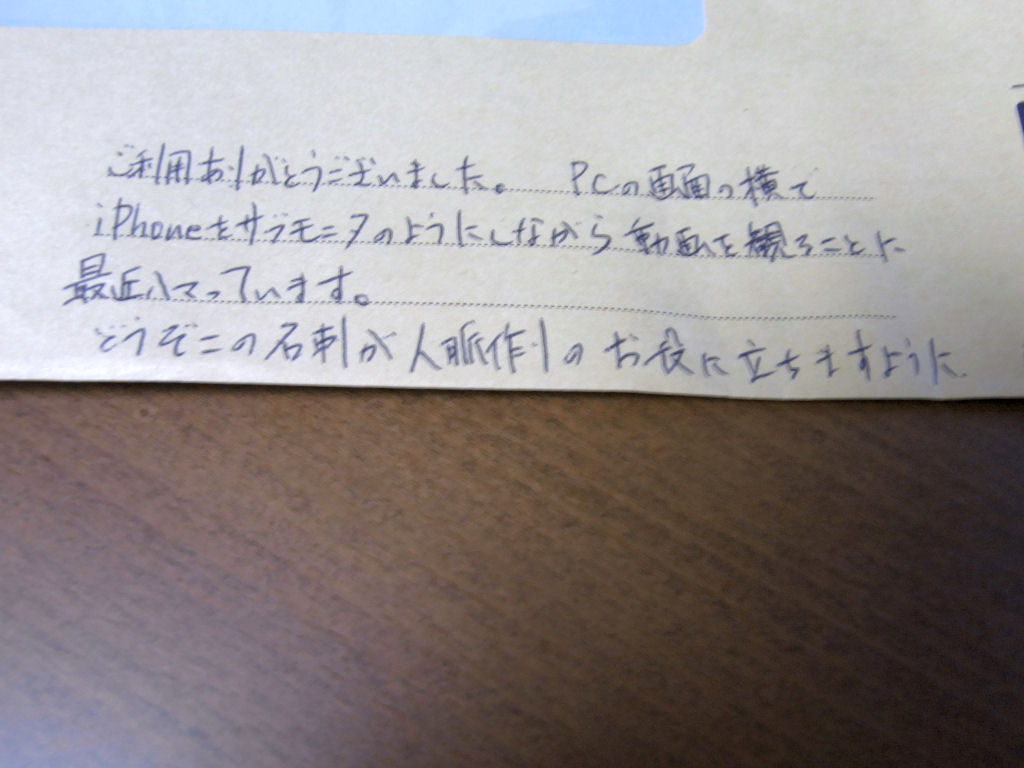 ご利用ありがとうございました。 PCの画面の横で
iPhoneをサブモニタのようにしながら動画を観ることに
最近ハマっています。
どうぞこの名刺が人脈作りのお役に立ちますように.